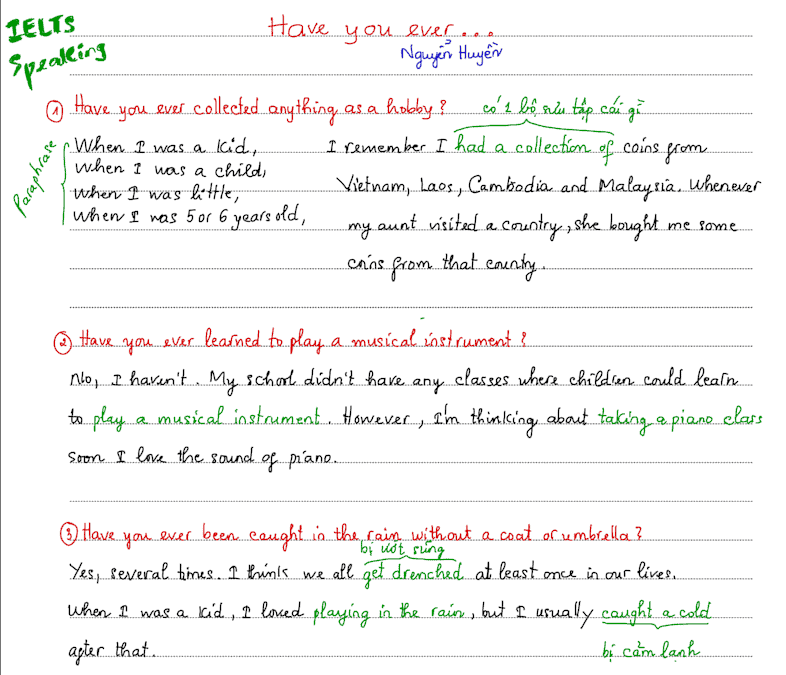 IELTS
Speaking
Have you ever...
Nguyễn Huyền
① Have you ever collected anything as a hobby? có 1 bộ sưu tập cái gì
Paraphrase
When I was a kid,
When I was a child,
When I was little,
When I was 5 or 6 years old,
I remember I had a collection of coins from
Vietnam, Laos, Cambodia and Malaysia. Whenever
my aunt visited a country, she bought me some
coins from that county.
② Have you ever learned to play a musical instrument?
No, I haven't. My school didn't have any classes where children could learn
to play a musical instrument. However, I'm thinking about taking a piano class
soon I love the sound of piano.
③ Have you ever been caught in the rain without a coat or umbrella?
bị ướt sũng
Yes, several times. I think we all get drenched at least once in our lives.
When I was a kid, I loved playing in the rain, but I usually caught a cold
after that.
bị cảm lạnh